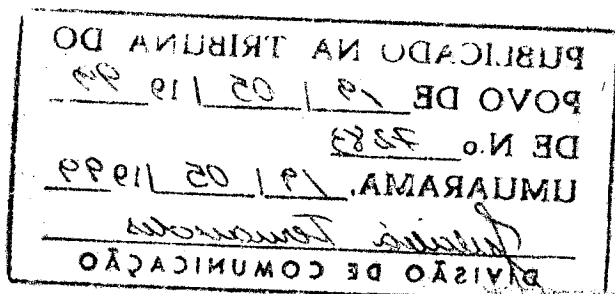 PUBLICADO NA TRIBUNA DO
POVO DE 19 / 05 / 19 99
DE N.o 7283
UMUARAMA, 19 / 05 / 1999
DIVISÃO DE COMUNICAÇÃO